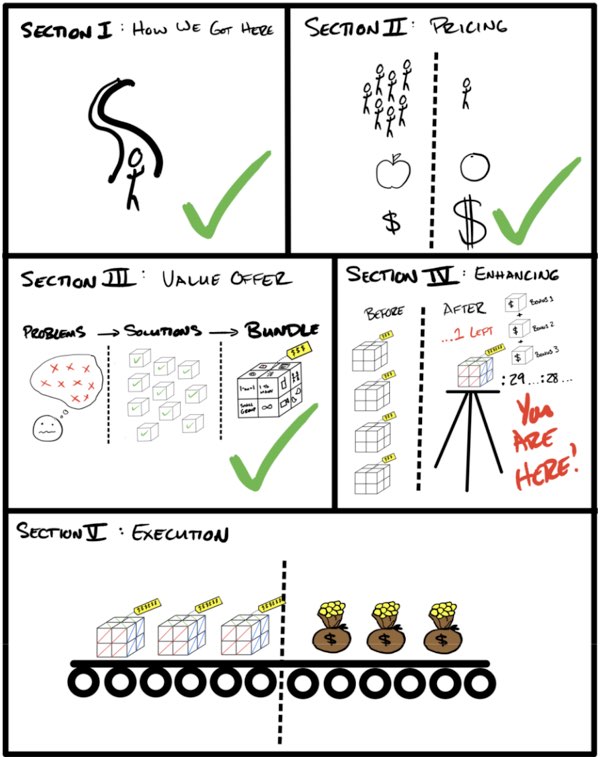 SECTION I: HOW WE GOT HERE
SECTION II: PRICING
$
$
SECTION III: VALUE OFFER
PROBLEMS → SOLUTIONS → BUNDLE
$$$
SMALL GROUP
SECTION IV: ENHANCING
BEFORE
AFTER
...1 LEFT
$ BONUS 1
+
$ BONUS 2
+
$ BONUS 3
$$$
$$$
$$$
$$$
:29...:28...
YOU
ARE
HERE!
SECTION V: EXECUTION
$$$$$$
$$$$$$
$$$$$$
$
$
$